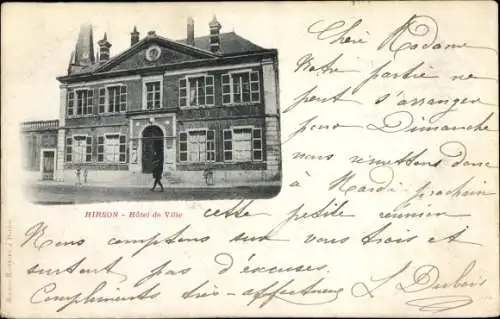 Chère Madame
Notre partie ne
peut s'arranger
pour Dimanche
nous remettons donc
à Mardi prochain
cette petite réunion
HIRSON - Hôtel de Ville
Nous comptons sur vous trois et
surtout pas d'excuses.
Compliments très-affectueux
L Dubois